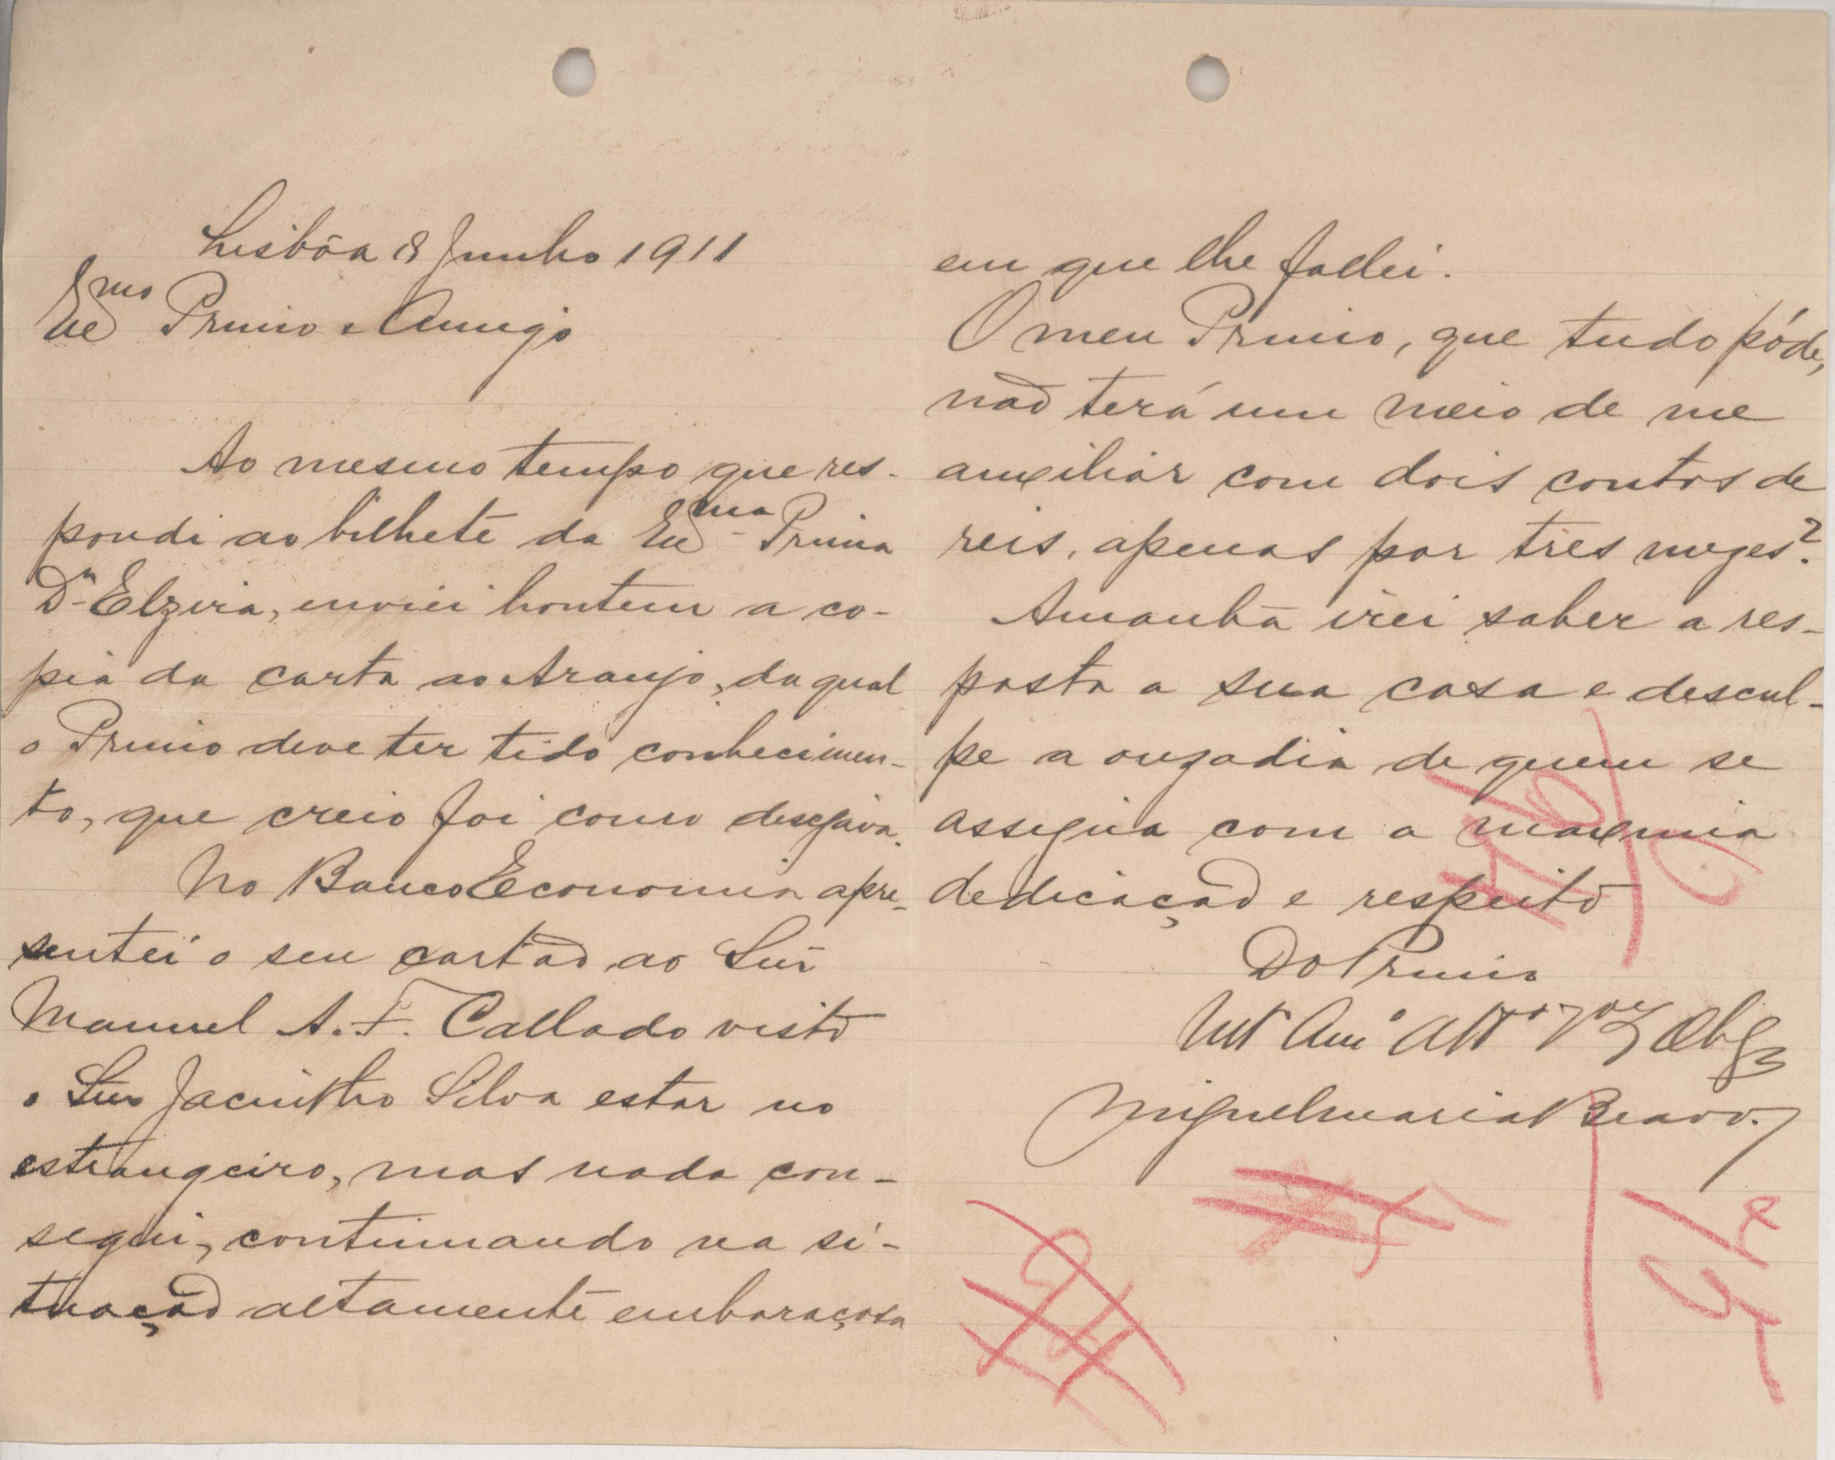 Lisbôa 8 Junho 1911
Exmo Primo e Amigo
Ao mesmo tempo que res-
pondi ao bilhete da Exma Prima
Dª Elzira, enviei hontem a co-
pia da carta ao Araujo, da qual
o Primo deve ter tido conhecimen-
to, que creio foi como desejava.
No Banco Economia apre-
sentei o seu cartão ao Snr
Manuel A. F. Callado visto
o Snr Jacintho Silva estar no
estrangeiro, mas nada con-
segui, continuando na si-
tuação altamente embaraçosa
em que lhe fallei.
O meu Primo, que tudo póde,
não terá um meio de me
auxiliar com dois contos de
reis, apenas por tres mezes?
Amanhã irei saber a res-
posta a sua casa e descul-
pe a ouzadia de quem se
assigna com a maxima
dedicação e respeito
Do Primo
Mto Amo Atto Obgo
Miguel Maria Bravo.